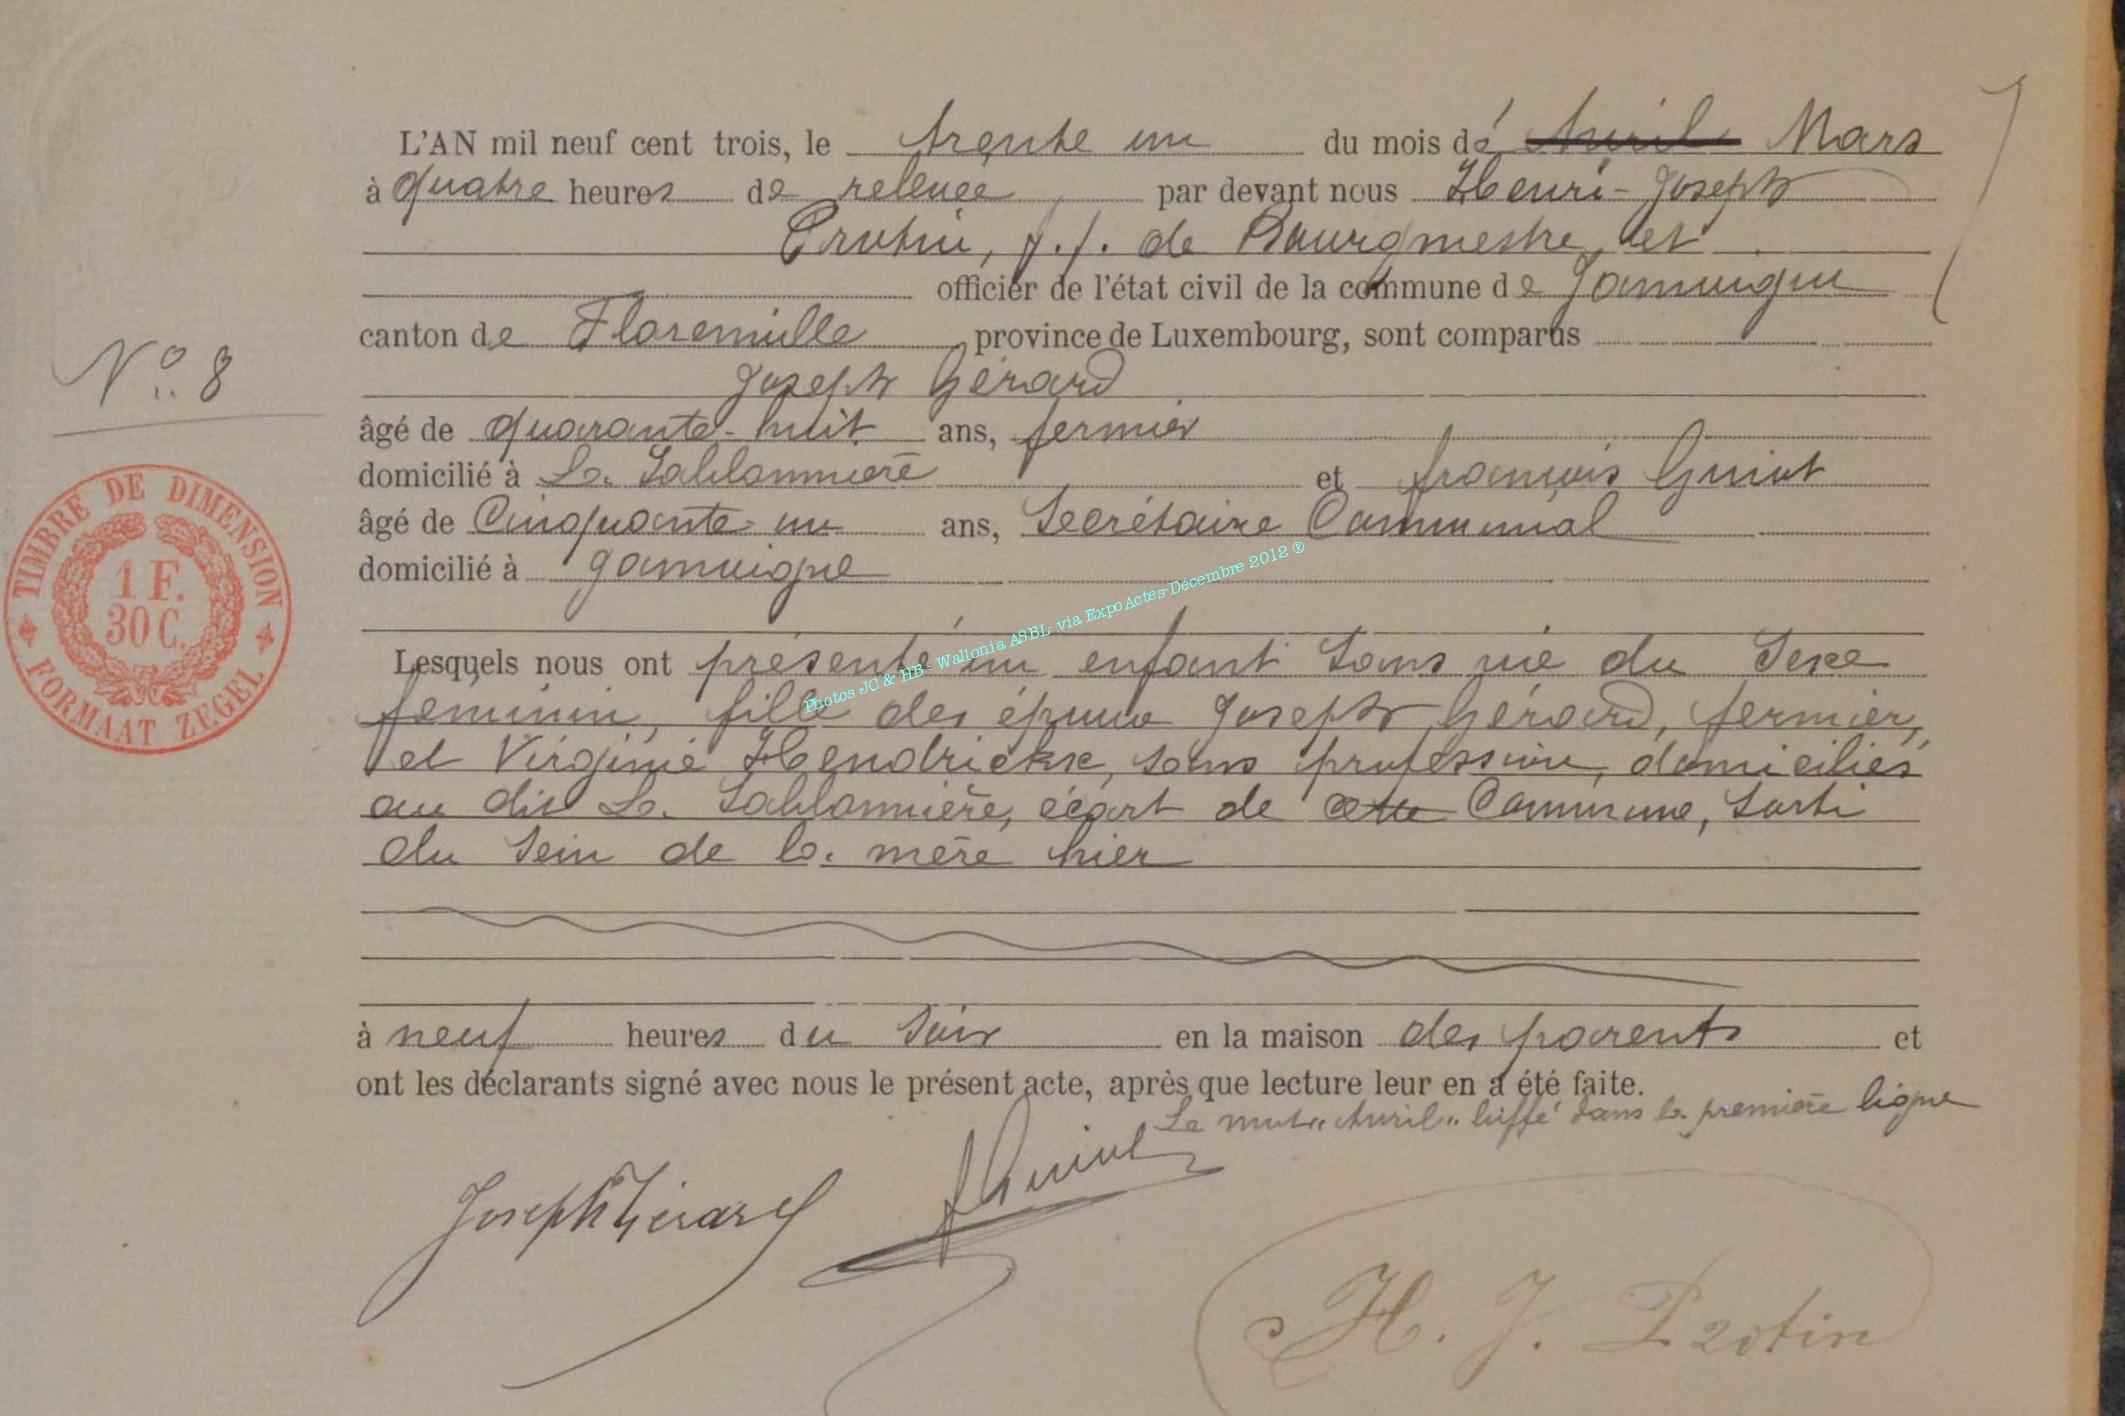 L'AN mil neuf cent trois, le trente un du mois de Avril Mars
à quatre heures de relevée par devant nous Henri-Joseph
Protin, f.f. de Bourgmestre et
officier de l'état civil de la commune de Jamoigne
canton de Florenville province de Luxembourg, sont comparus
Joseph Gérard
No. 8
âgé de quarante-huit ans, fermier
domicilié à La Sablonnière et françois Guiot
âgé de Cinquante-un ans, Secrétaire Communal
domicilié à Jamoigne
TIMBRE DE DIMENSION
1 F.
30 C.
FORMAAT ZEGEL
Photos JC & HB - Wallonia ASBL via ExpoActes Décembre 2012 ®
Lesquels nous ont présenté un enfant sans vie du Sexe
féminin, fille des époux Joseph Gérard, fermier,
et Virginie Hendrickx, sans profession, domiciliés
au dit La Sablonnière, écart de cette Commune, sorti
du Sein de la mère hier
à neuf heures du soir en la maison des parents et
ont les déclarants signé avec nous le présent acte, après que lecture leur en a été faite.
Le mot "Avril" biffé dans la première ligne
Joseph Gérard
f Guiot
H. J. Protin